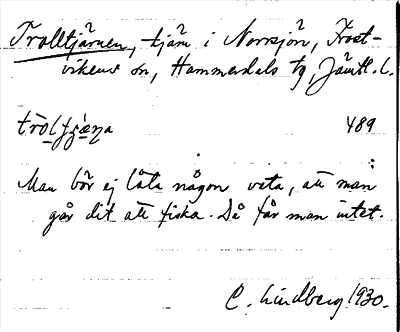 Trolltjärnen, tjärn i Norrsjön, Frost-
vikens sn, Hammerdals tg, Jämtl. l.
489
Man bör ej låta någon veta, att man
går dit att fiska. Då får man intet.
C. Lindberg 1930.